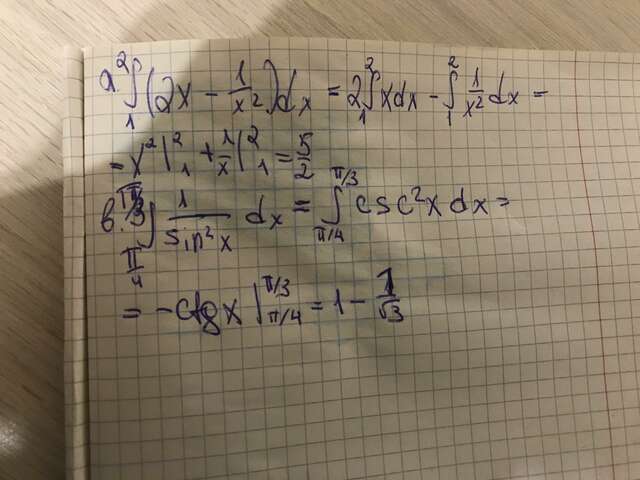 a ∫₁² (2x - 1/x²)dx = 2∫₁² xdx - ∫₁² 1/x² dx =
= x² |₁² + 1/x |₁² = 5/2
в. ∫_{π/4}^{π/3} 1/sin²x dx = ∫_{π/4}^{π/3} csc²x dx =
= -ctg x |_{π/4}^{π/3} = 1 - 1/√3